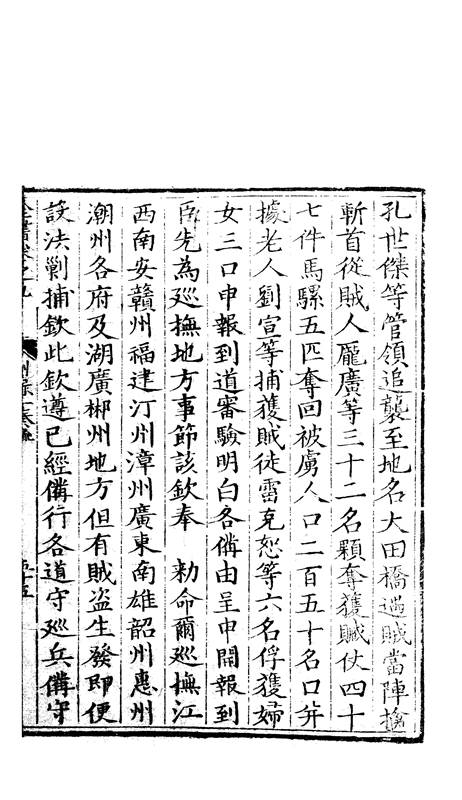 孔世傑等管領追襲至地名大田橋遇賊當陣擒
斬首從賊人龐廣等三十二名顆奪獲贓仗四十
七件馬騾五匹奪回被虜人口二百五十名口并
據老人劉宣等捕獲賊徒雷克恕等六名俘獲婦
女三口申報到道審驗明白各備由呈申開報到
臣先為巡撫地方事節該欽奉　勅命爾巡撫江
西南安贛州福建汀州漳州廣東南雄韶州惠州
潮州各府及湖廣郴州地方但有賊盗生發即便
設法剿捕欽此欽遵已經備行各道守巡兵備守
全書卷之九　別錄一奏疏　五十五